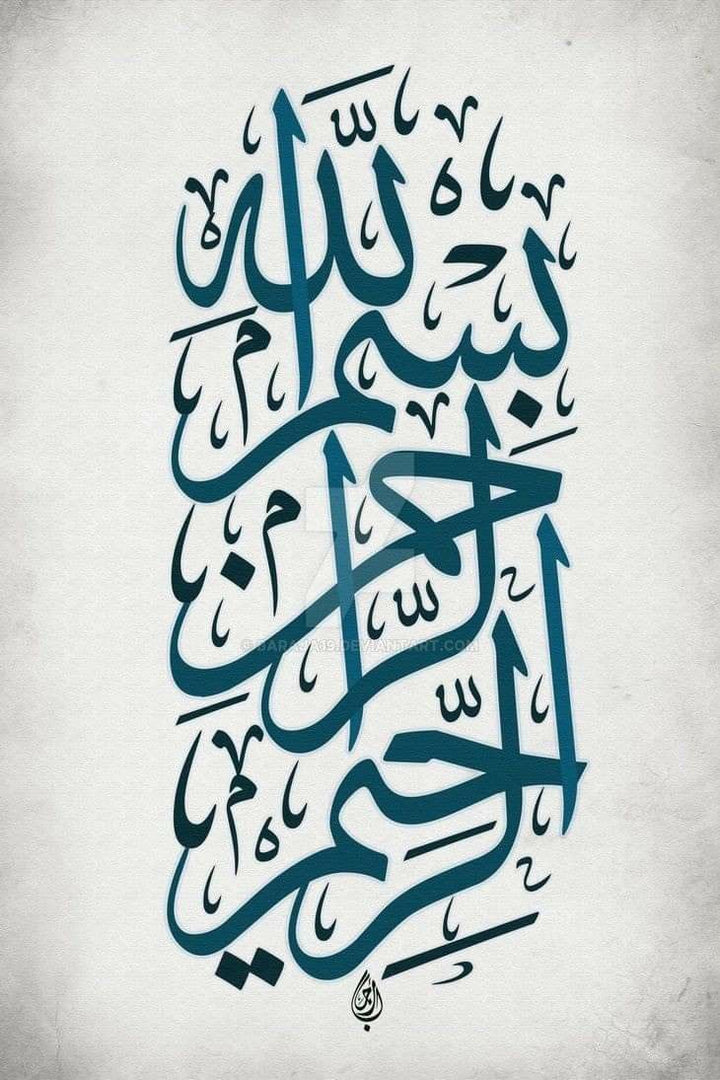 بِسْمِ اللَّهِ
الرَّحْمَنِ
الرَّحِيمِ
©BARAJA19.DEVIANTART.COM